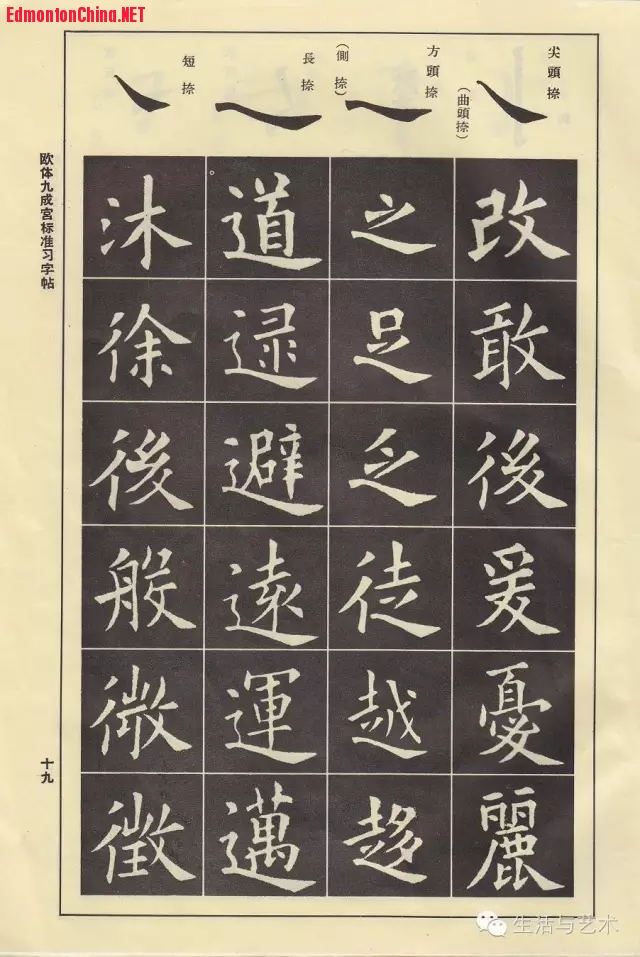 EdmontonChina.NET
尖頭捺
(曲頭捺)
方頭捺
(側捺)
長捺
短捺
改敢後爰憂麗
之足乏徒越趍
道逮避遠運邁
沐徐後般微徵
欧体九成宮标准习字帖
十九
生活与艺术